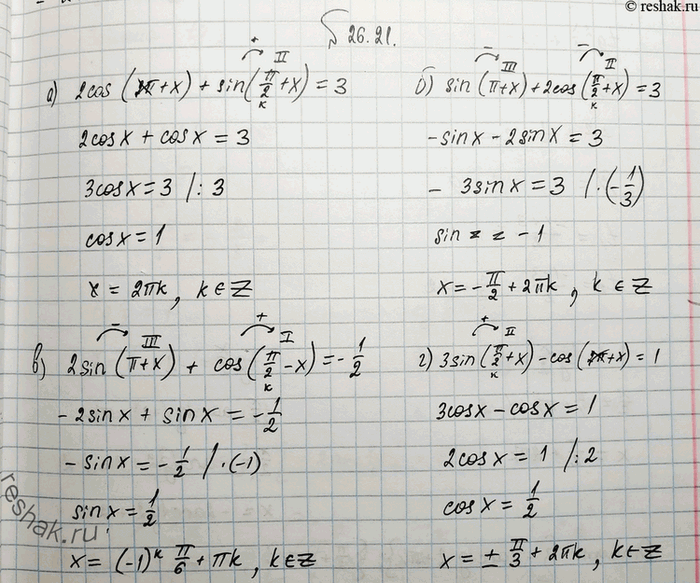 © reshak.ru
§ 26.21.
+ II
а) 2cos (2π+x) + sin(π/2+x) = 3
к
2cosx + cosx = 3
3cosx = 3 /: 3
cosx = 1
x = 2πk, k∈Z
− III − II
б) sin(π+x)+2cos(π/2+x) = 3
к
-sinx - 2sinx = 3
- 3sinx = 3 /·(-1/3)
sin z z -1
x = -π/2 + 2πk, k ∈ Z
− III + I
в) 2sin(π+x) + cos(π/2-x) = -1/2
к
-2sinx + sinx = -1/2
-sinx = -1/2 /·(-1)
sinx = 1/2
x = (-1)ᵏ π/6 + πk, k∈Z
+ II
г) 3sin(π/2+x) - cos(2π+x) = 1
к
3cosx - cosx = 1
2cosx = 1 /:2
cosx = 1/2
x = ± π/3 + 2πk, k∈Z
reshak.ru